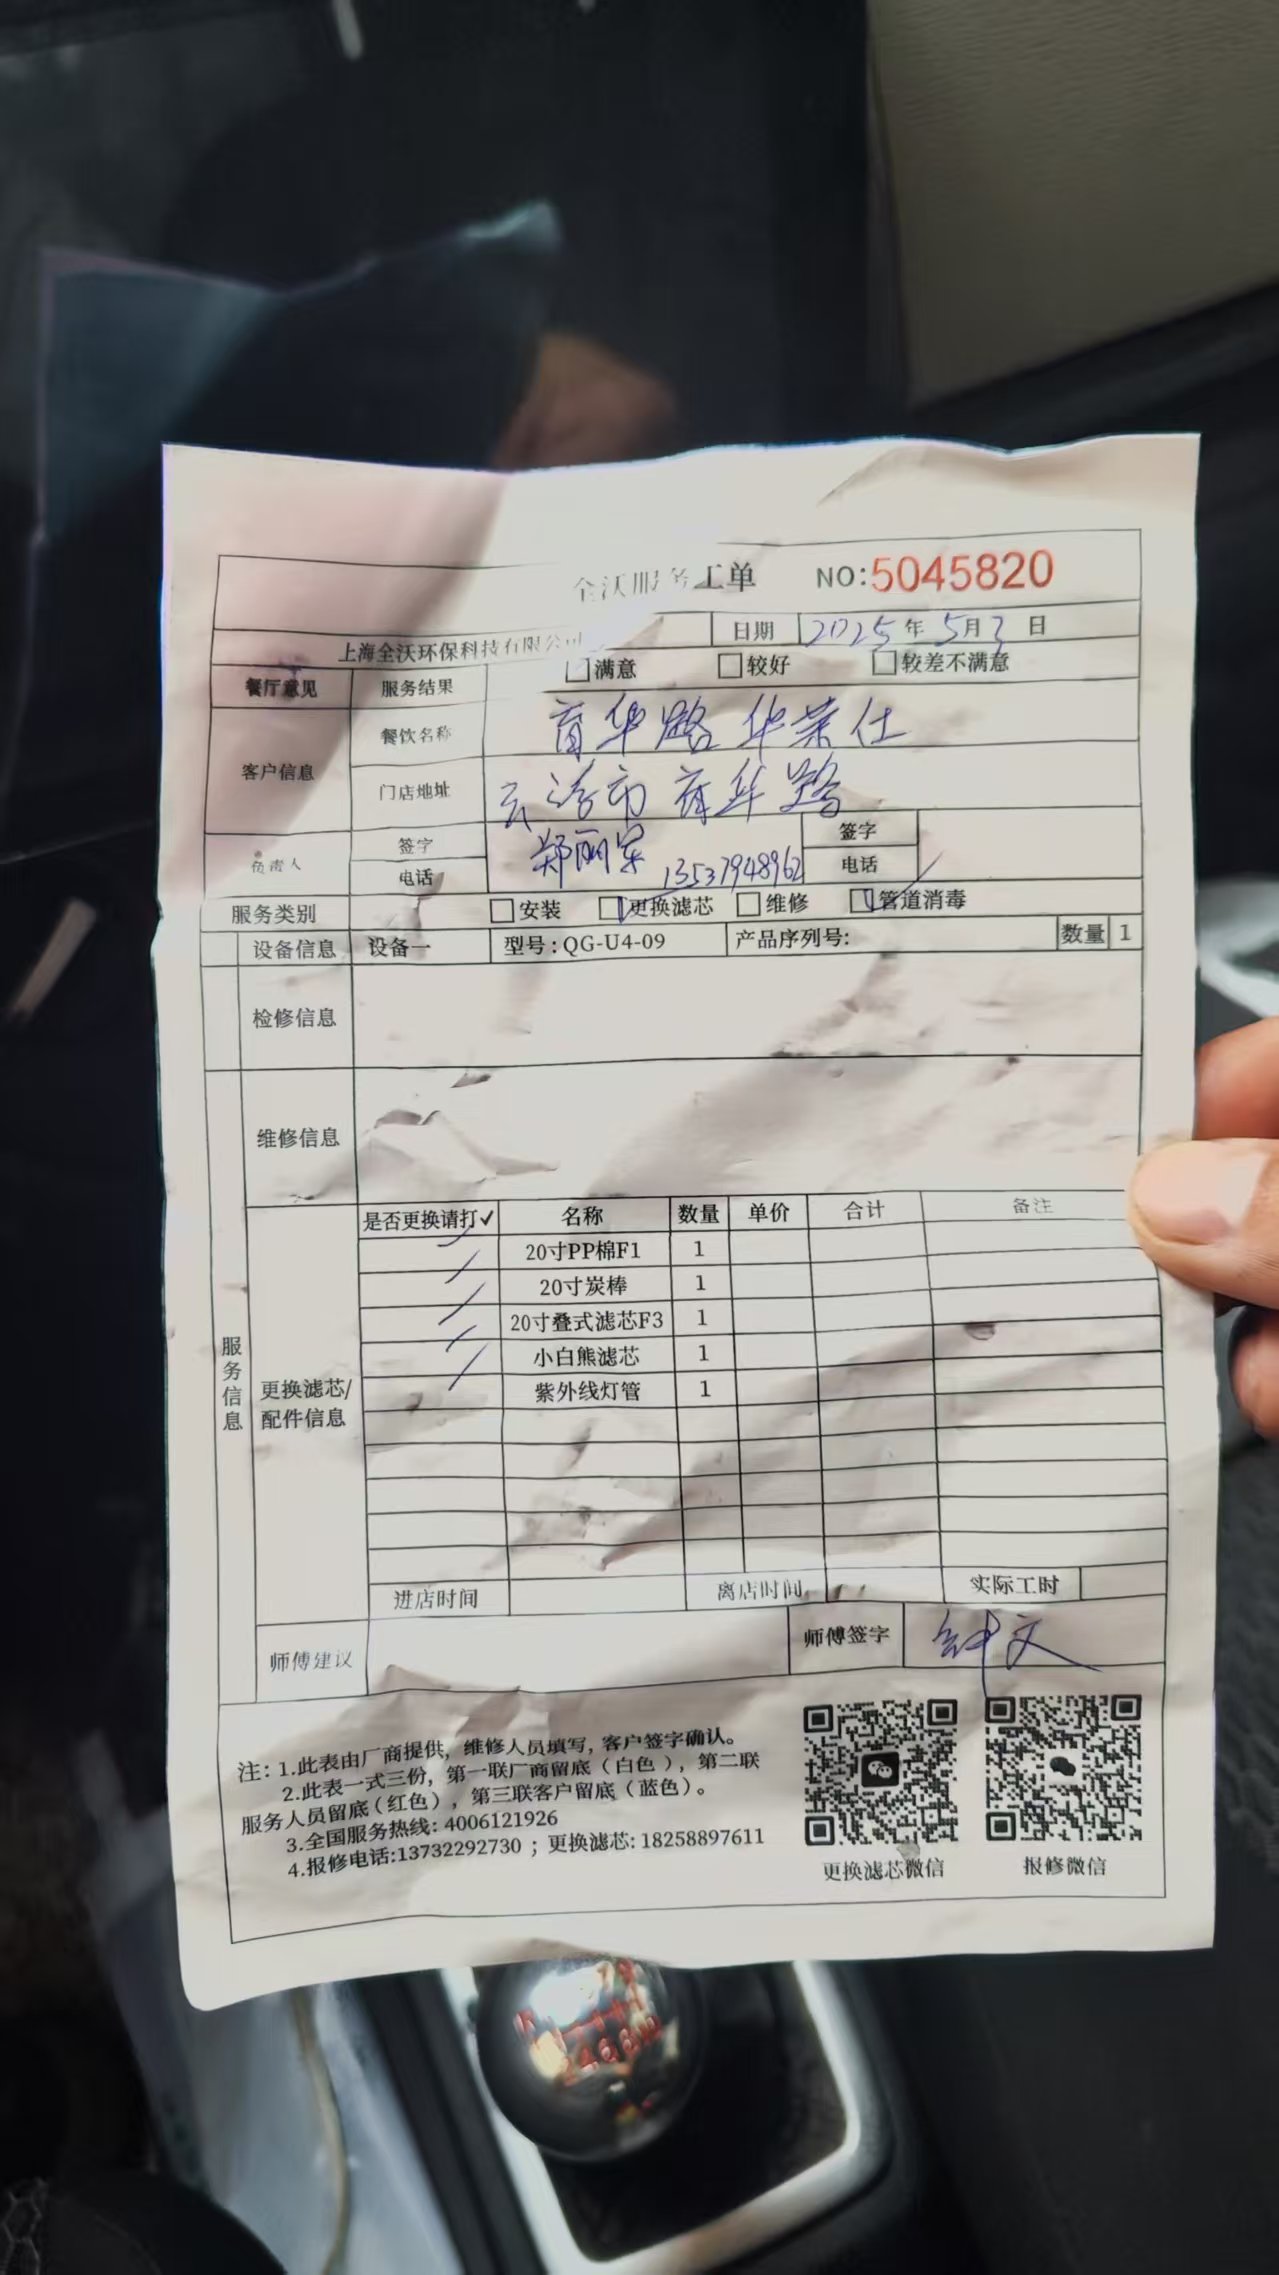 全沃服务工单 NO:5045820
上海全沃环保科技有限公司 日期 2025年5月3日
餐厅意见 服务结果 满意 较好 较差不满意
客户信息 餐饮名称 育华路华莱仕
门店地址 云浮市育华路
负责人 签字 郑丽 签字
电话 13537948962 电话
服务类别 安装 更换滤芯 维修 管道消毒
设备信息 设备一 型号:QG-U4-09 产品序列号: 数量 1
检修信息
维修信息
服务信息
更换滤芯/配件信息
是否更换请打✓ 名称 数量 单价 合计 备注
20寸PP棉F1 1
20寸炭棒 1
20寸叠式滤芯F3 1
小白熊滤芯 1
紫外线灯管 1
进店时间 离店时间 实际工时
师傅建议 师傅签字 钟文
注:1.此表由厂商提供,维修人员填写,客户签字确认。
2.此表一式三份,第一联厂商留底(白色),第二联
服务人员留底(红色),第三联客户留底(蓝色)。
3.全国服务热线:4006121926
4.报修电话:13732292730;更换滤芯:18258897611
更换滤芯微信 报修微信